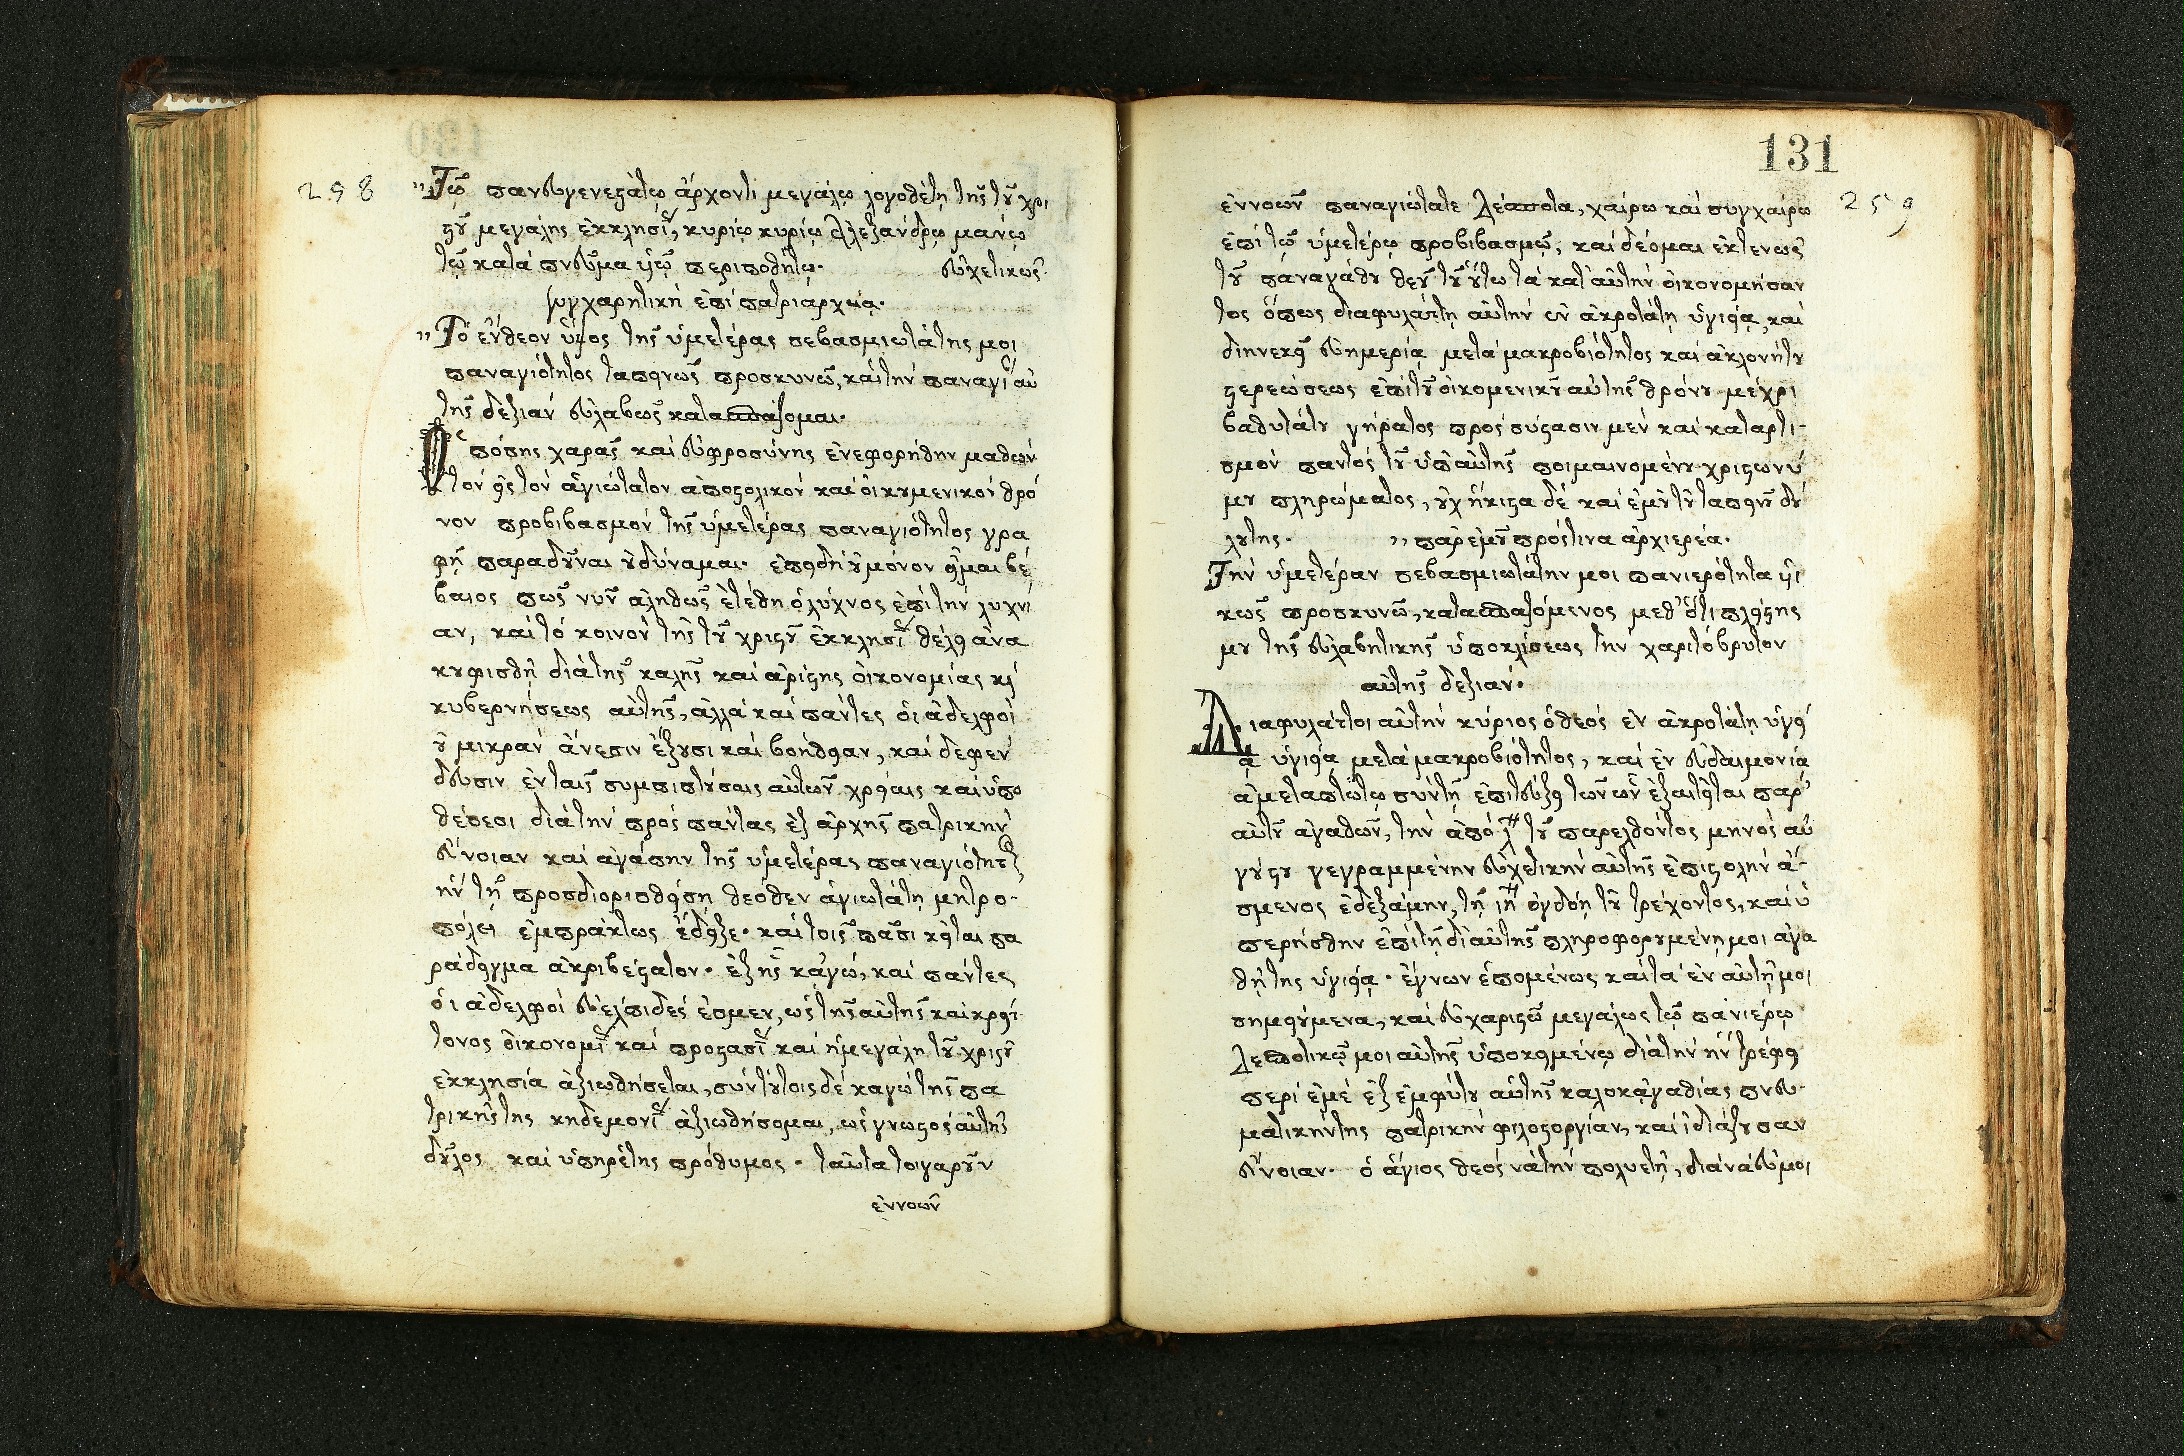 258
" Τῷ πανευγενεστάτῳ ἄρχοντι μεγάλῳ λογοθέτῃ τῆς τοῦ χρι
στοῦ μεγάλης ἐκκλησίας, κυρίῳ κυρίῳ ἀλεξάνδρῳ μάνῳ
τῷ κατά πνεῦμα υἱῷ περιποθήτῳ· εὐχετικῶς·
συγχαρητική ἐπί πατριάρχεια·
" Τό ἔνθεον ὕψος τῆς ὑμετέρας σεβασμιωτάτης μοι
παναγιότητος ταπεινῶς προσκυνῶ, καί τήν παναγίαν αὐ
τῆς δεξιάν εὐλαβῶς κατασπάζομαι·
Ὁπόσης χαρᾶς καί εὐφροσύνης ἐνεφορήθην μαθών
τόν εἰς τόν ἁγιώτατον ἀποστολικόν καί οἰκουμενικόν θρό
νον προβιβασμόν τῆς ὑμετέρας παναγιότητος γρα
φῇ παραδοῦναι οὐ δύναμαι· ἐπειδή οὐ μόνον εἶμαι βέ
βαιος πῶς νῦν ἀληθῶς ἐτέθη ὁ λύχνος ἐπί τήν λυχνί
αν, καί τό κοινόν τῆς τοῦ χριστοῦ ἐκκλησίας θέλει ἀνα
κουφισθῇ διά τῆς καλῆς καί ἀρίστης οἰκονομίας καί
κυβερνήσεως αὐτῆς, ἀλλά καί πάντες οἱ ἀδελφοί
οὐ μικράν ἄνεσιν ἕξουσι καί βοήθειαν, καί δεφέν
δευσιν ἐν ταῖς συμπιπτούσαις αὐτῶν χρείαις καί ὑπο
θέσεσι διά τήν πρός πάντας ἐξ ἀρχῆς πατρικήν
εὔνοιαν καί ἀγάπην τῆς ὑμετέρας παναγιότητος,
ἥν τῇ προσδιορισθείσῃ θεόθεν ἁγιωτάτῃ μητρο-
πόλει ἐμπράκτως ἔδειξε· καί τοῖς πᾶσι κεῖται πα
ράδειγμα ἀκριβέστατον· ἐξ ἧς κἀγώ, καί πάντες
οἱ ἀδελφοί εὐέλπιδές ἐσμεν, ὡς τῆς αὐτῆς καί κρεί
τονος οἰκονομίας καί προστασίας καί ἡ μεγάλη τοῦ χριστοῦ
ἐκκλησία ἀξιωθήσεται, σύν τούτοις δέ κἀγώ τῆς πα
τρικῆς της κηδεμονίας ἀξιωθήσομαι, ὡς γνωστός αὐτῆς
δοῦλος καί ὑπηρέτης πρόθυμος· ταῦτα τοιγαροῦν
ἐννοῶν
131
259
ἐννοῶν παναγιώτατε δέσποτα, χαίρω καί συγχαίρω
ἐπί τῷ ὑμετέρῳ προβιβασμῷ, καί δέομαι ἐκτενῶς
τοῦ παναγάθου θεοῦ τοῦ οὕτω τά κατ' αὐτήν οἰκονομήσαν
τος ὅπως διαφυλάττῃ αὐτήν ἐν ἀκροτάτῃ ὑγιείᾳ, καί
διηνεκεῖ εὐημερίᾳ μετά μακροβιότητος καί ἀκλονήτου
στερεώσεως ἐπί τοῦ οἰκουμενικοῦ αὐτῆς θρόνου μέχρι
βαθυτάτου γήρατος πρός σύστασιν μέν καί καταρτι-
σμόν παντός τοῦ ὑπ' αὐτῆς ποιμαινομένου χριστωνύ
μου πληρώματος, οὐχ ἥκιστα δέ καί ἐμοῦ τοῦ ταπεινοῦ δού
λου της· " παρ' ἐμοῦ πρός τινα ἀρχιερέα·
Τήν ὑμετέραν σεβασμιωτάτην μοι πανιερότητα υἱι
κῶς προσκυνῶ, κατασπαζόμενος μεθ' ὅτι πλείστης
μου τῆς εὐλαβητικῆς ὑποκλίσεως τήν χαριτόβρυτον
αὐτῆς δεξιάν·
Διαφυλάττοι αὐτήν κύριος ὁ θεός ἐν ἀκροτάτῃ ὑγιεί
ᾳ ὑγιείᾳ μετά μακροβιότητος, καί ἐν εὐδαιμονίᾳ
ἀμεταπτώτῳ σύν τῇ ἐπιτεύξει τῶν ὧν ἐξαιτεῖται παρ'
αὐτοῦ ἀγαθῶν, τήν ἀπό λ τοῦ παρελθόντος μηνός αὐ
γούστου γεγραμμένην εὐχετικήν αὐτῆς ἐπιστολήν ἄ-
σμενος ἐδεξάμην, τῇ ιη ὀγδόῃ τοῦ τρέχοντος, καί ὑ
περήσθην ἐπί τῇ δι' αὐτῆς πληροφορουμένῃ μοι ἀγα
θῇ της ὑγιείᾳ· ἔγνων ἑπομένως καί τά ἐν αὐτῇ μοι
σημειούμενα, καί εὐχαριστῶ μεγάλως τῷ πανιέρῳ
δεσποτικῷ μοι αὐτῆς ὑποκειμένῳ διά τήν ἥν τρέφει
περί ἐμέ ἐξ ἐμφύτου αὐτῆς καλοκἀγαθίας πνευ-
ματικήν της πατρικήν φιλοστοργίαν, καί ἰδιάζουσαν
εὔνοιαν· ὁ ἅγιος θεός νά τήν πολυετῇ, διά νά εὔμοι